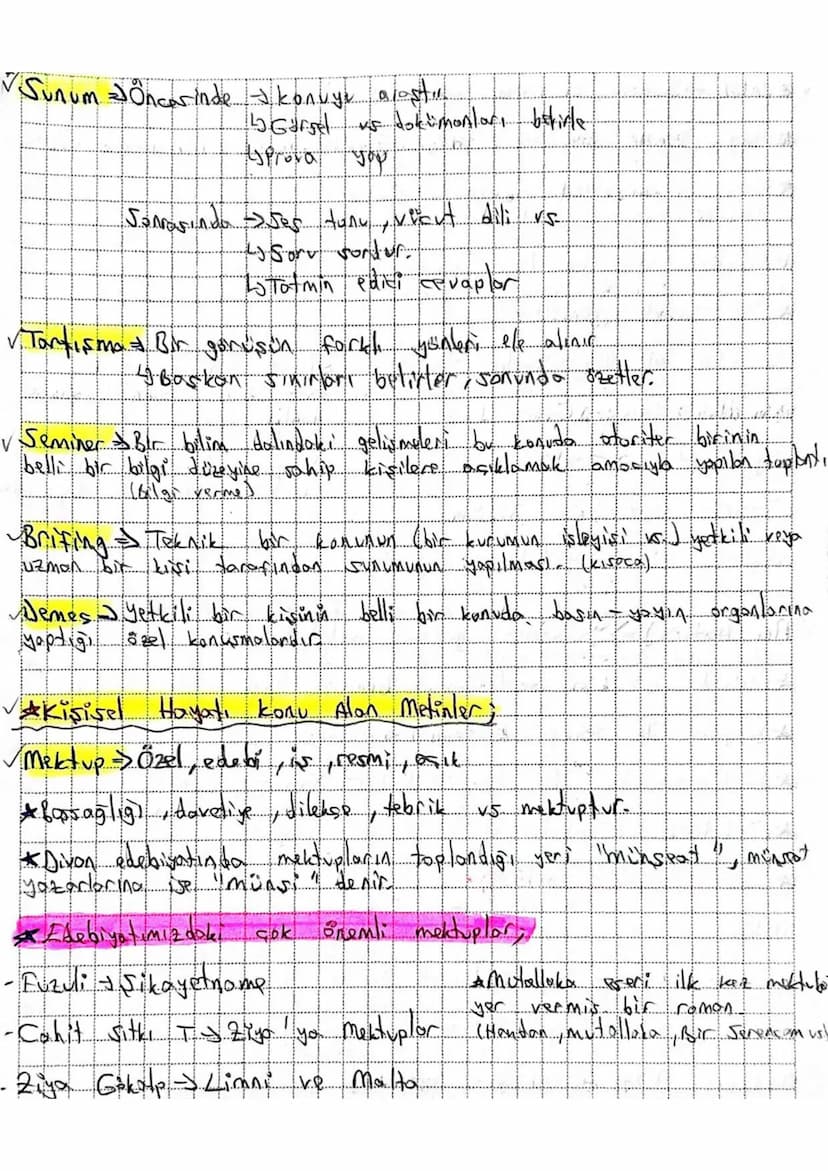 ✓ Sunum ⇒ Öncesinde → konuyu araştır.
↳ Görsel vs dokümanları belirle
↳ Prova yap
Sonrasında → Ses tonu, vücut dili vs
↳ Soru sordur.
↳ Tatmin edici cevaplar
✓ Tartışma ⇒ Bir görüşün farklı yönleri ele alınır
↳ Başkan sınırları belirler, sonunda özetler.
✓ Seminer ⇒ Bir bilim dalındaki gelişmeleri bu konuda otoriter birinin
belli bir bilgi düzeyine sahip kişilere açıklamak amacıyla yapılan toplantı
(bilgi verme)
✓ Brifing ⇒ Teknik bir konunun (bir kurumun işleyişi vs.) yetkili veya
uzman bir kişi tarafından sunumunun yapılması. (kısaca)
✓ Demeç ⇒ Yetkili bir kişinin belli bir konuda basın-yayın organlarına
yaptığı özel konuşmalardır
✓ ★Kişisel Hayatı Konu Alan Metinler;
✓ Mektup ⇒ Özel, edebi, iş, resmi, açık
★Başsağlığı, davetiye, dilekçe, tebrik vs mektuptur.
★Divan edebiyatında mektupların toplandığı yeri "münşeat", münşeat
yazarlarına ise "münşi" denir.
★Edebiyatımızdaki çok önemli mektuplar;
- Fuzuli → Şikayetname
- Cahit Sıtkı T → Ziya'ya Mektuplar
- Ziya Gökalp → Limni ve Malta
★Mutallaka eseri ilk kez mektuba
yer vermiş bir roman.
(Handan, mutallaka, Bir Serencam vs)